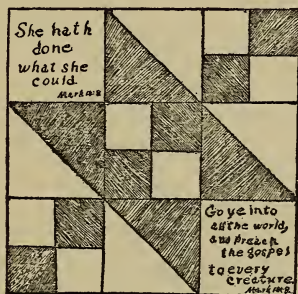 She hath
done
what she
could
Mark 14:8
Go ye into
all the world,
and preach
the gospel
to every
creature